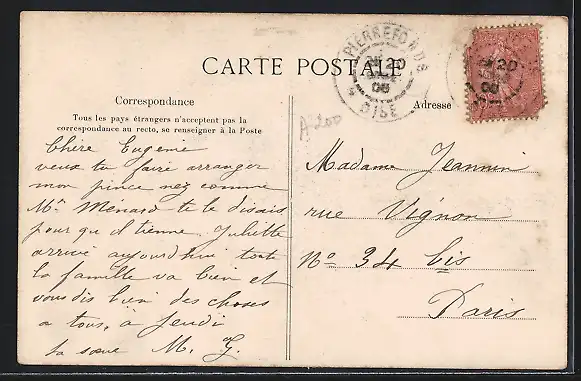 CARTE POSTALE
PIERREFONDS
OISE
20
06
Correspondance
Tous les pays étrangers n'acceptent pas la
correspondance au recto, se renseigner à la Poste
Adresse
Chère Eugenie
veux tu faire arranger
mon pince nez comme
Mr Ménard te le disais
pour qu il tienne. Juliette
arrive aujourdhui toute
la famille va bien et
vous dis bien des choses
a tous, à Jeudi
ta sœur M. J.
Madame Jeannin
rue Vignon
No 34 bis
Paris